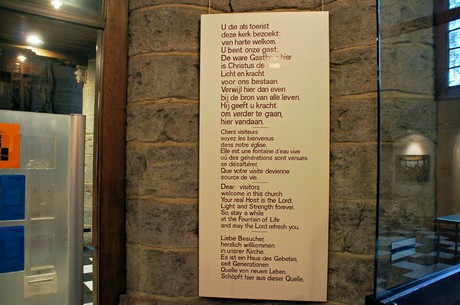 U die als toerist
deze kerk bezoekt:
van harte welkom.
U bent onze gast.
De ware Gastheer hier
is Christus de
Licht en kracht
voor ons bestaan.
Verwijl hier dan even
bij de bron van alle leven.
Hij geeft u kracht
om verder te gaan,
hier vandaan.
Chers visiteurs
soyez les bienvenus
dans notre église.
Elle est une fontaine d'eau vive
où des générations sont venues
se désaltérer.
Que votre visite devienne
source de vie.
Dear visitors
welcome in this church
Your real Host is the Lord.
Light and Strength forever.
So, stay a while
at the Fountain of Life
and may the Lord refresh you.
Liebe Besucher,
herzlich willkommen
in unsrer Kirche.
Es ist ein Haus des Gebetes,
seit Generationen
Quelle von neuem Leben.
Schöpft hier aus dieser Quelle.